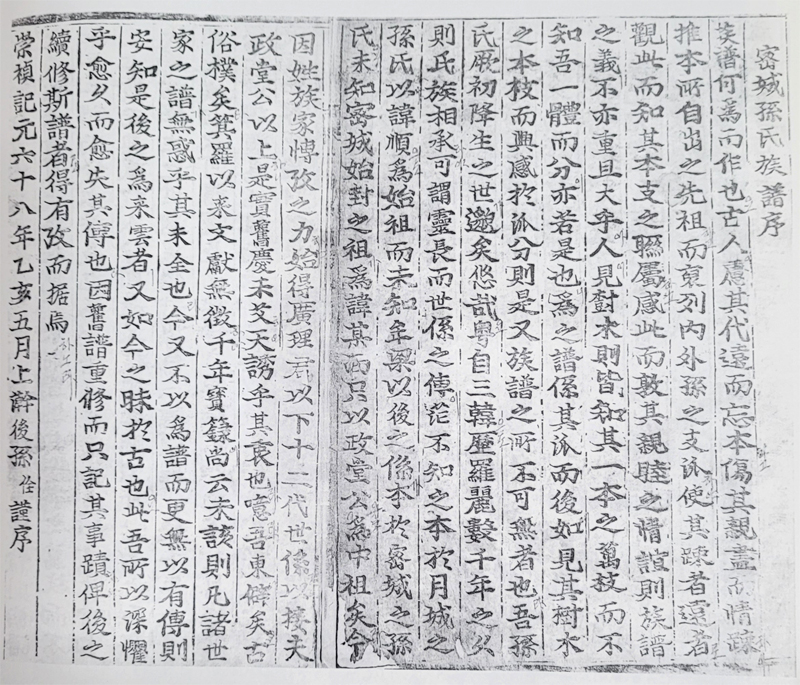 密城孫氏族譜序
族譜何爲而作也古人慮其代遠而忘本傷其親盡而情疎
推本所自出之先祖而裒列內外孫之支派使其踈者遠者
觀此而知其本支之聯屬感此而敦其親睦之情誼則族譜
之義不亦重且大乎人見樹木則皆知其一本之萬枝而不
知吾一體而分亦若是也爲之譜係其派而後如見其樹木
之本枝而興感於派分則是又族譜之所不可無者也吾孫
氏厥初降生之世邈矣悠哉粤自三韓歷羅麗數千年之久
則氏族相承可謂靈長而世係之傳茫不知之本於月城之
孫氏以諱順爲始祖而未知年梁以後之係本於密城之孫
氏未知密城始封之祖爲諱某而只以政堂公爲中祖矣今
因姓族家傳攷之力始得廣理君以下十二代世係以接夫
政堂公以上是實舊慶未艾天誘乎其衷也噫吾東僻矣古
俗樸矣箕羅以來文獻無徵千年寶籙尚云未該則凡諸世
家之譜無惑乎其未全也今又不以爲譜而更無以有傳則
安知是後之爲來雲者又如今之昧於古也此吾所以深懼
乎愈久而愈失其傳也因舊譜重修而只記其事蹟俾後之
續修斯譜者得有攷而据焉
崇禎記元六十八年乙亥五月上澣後孫佺謹序